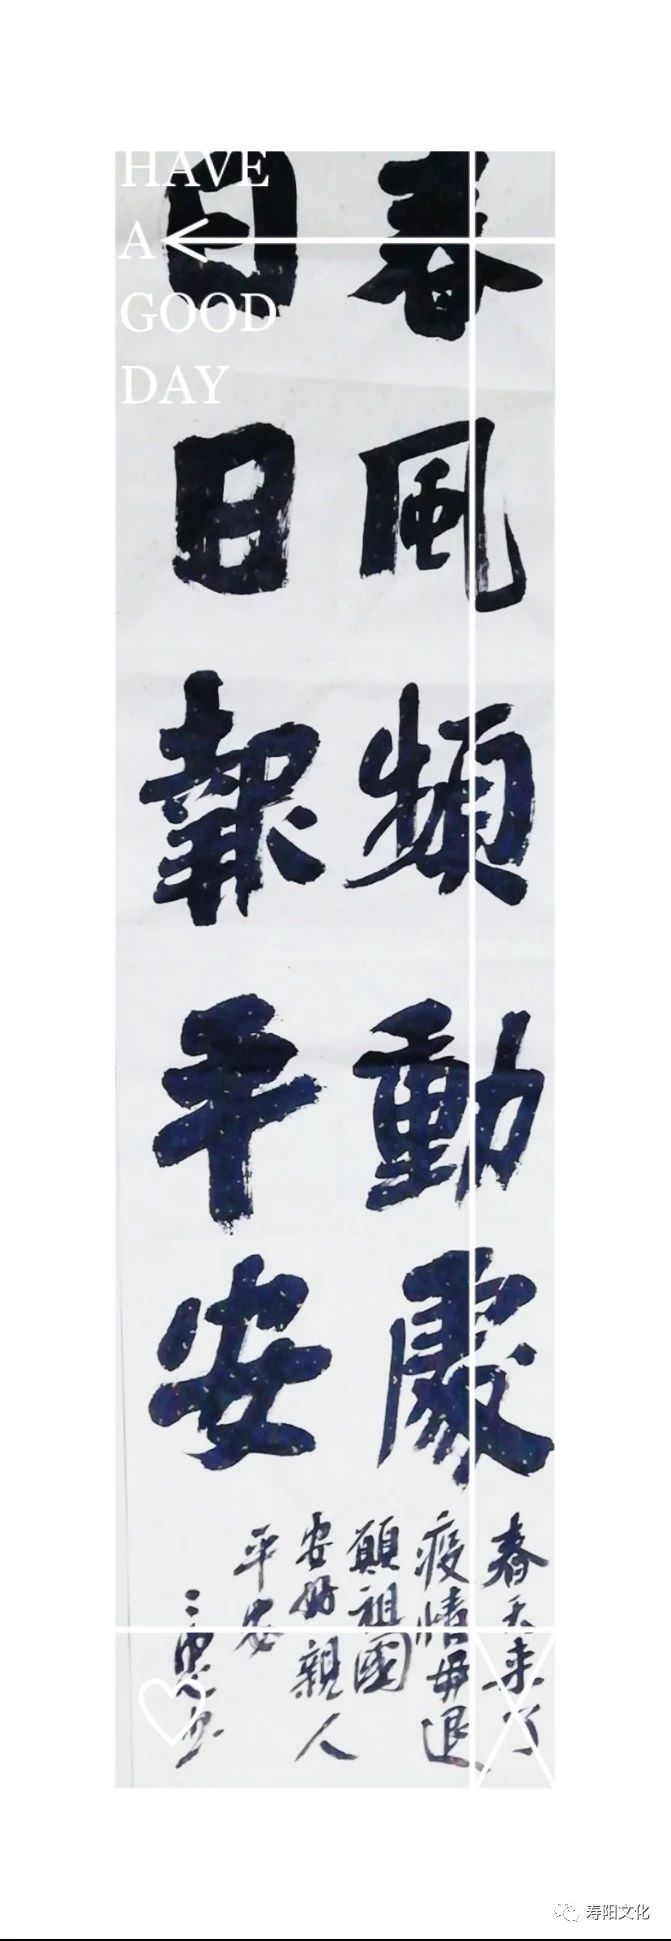 HAVE
A
GOOD
DAY
春風頻動處
日日報平安
春天来了
疫情毋退
願祖國
安好親人
平安
寿阳文化